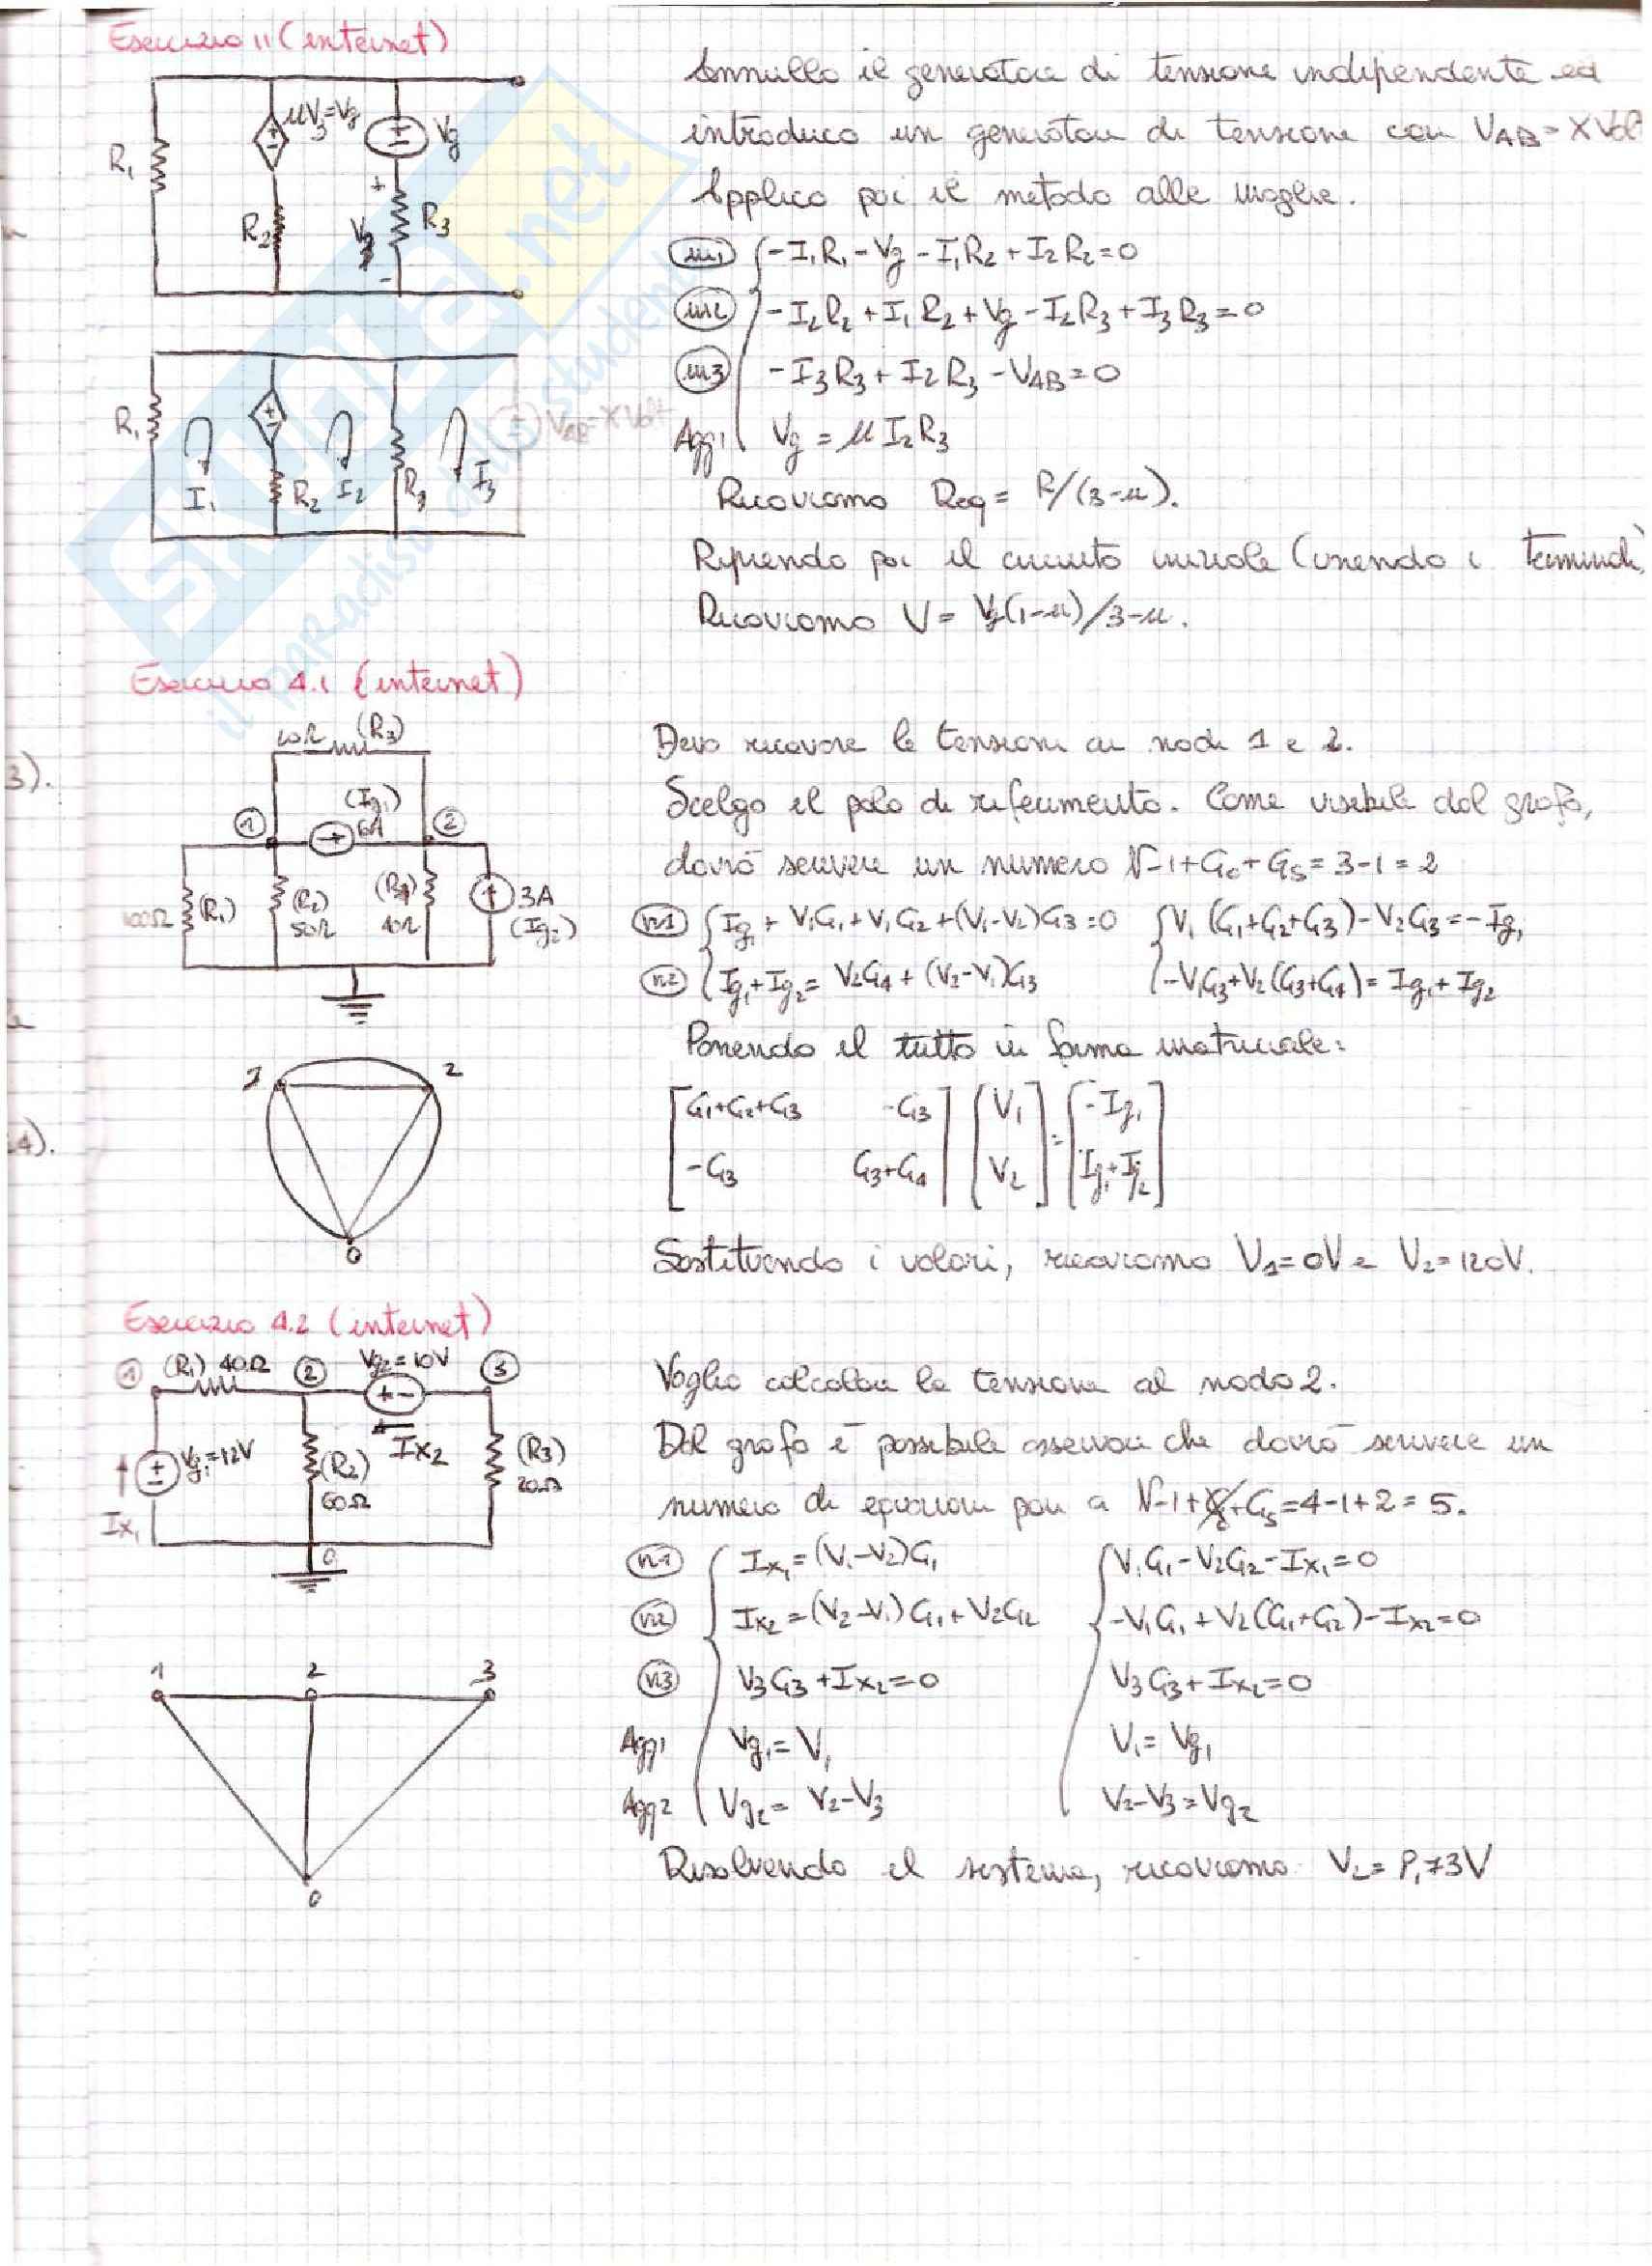 Esercizio 11 (internet)
μV3=Vg
Vg
R1
R2
V3
R3
+
-
Annullo il generatore di tensione indipendente ed
introduco un generatore di tensione con VAB = X Volt
Applico poi il metodo alle maglie.
m1 -I1R1 - Vg - I1R2 + I2R2 = 0
m2 -I2R2 + I1R2 + Vg - I2R3 + I3R3 = 0
m3 -I3R3 + I2R3 - VAB = 0
Agg1 Vg = μ I2R3
Ricaviamo Req = R/(3-μ).
Riprendo poi il circuito iniziale (unendo i terminali
Ricaviamo V = Vg(1-μ)/3-μ.
R1
I1
R2
I2
R3
I3
VAB = X Volt
SKUOLA.net
il paradiso dello studente
Esercizio 4.1 (internet)
3).
(R3)
(Ig1)
6A
1
2
100Ω (R1)
(R2)
50Ω
(R4)
40Ω
3A
(Ig2)
Devo ricavare le tensioni ai nodi 1 e 2.
Scelgo il polo di riferimento. Come visibile dal grafo,
dovrò scrivere un numero N-1+Gc+Gs = 3-1 = 2
n1 Ig1 + V1G1 + V1G2 + (V1-V2)G3 = 0 V1 (G1+G2+G3) - V2G3 = -Ig1
n2 Ig1+Ig2 = V2G4 + (V2-V1)G3 -V1G3+V2(G3+G4) = Ig1+Ig2
Ponendo il tutto in forma matriciale:
G1+G2+G3 -G3 V1 = -Ig1
-G3 G3+G4 V2 Ig1+Ig2
1
2
0
4).
Sostituendo i valori, ricaviamo V1=0V e V2=120V.
Esercizio 4.2 (internet)
1
(R1) 40Ω
2
Vg2=10V
3
+ -
Ix2
Vg1=12V
Ix1
(R2)
60Ω
(R3)
20Ω
0
Voglio calcolare la tensione al nodo 2.
Dal grafo è possibile osservare che dovrò scrivere un
numero di equazioni pari a N-1+Gc+Gs = 4-1+2 = 5.
n1 Ix1 = (V1-V2)G1 V1G1 - V2G2 - Ix1 = 0
n2 Ix2 = (V2-V1)G1 + V2G2 -V1G1 + V2(G1+G2) - Ix2 = 0
n3 V3G3 + Ix2 = 0 V3G3 + Ix2 = 0
Agg1 Vg1 = V1 V1 = Vg1
Agg2 Vg2 = V2-V3 V2-V3 = Vg2
Risolvendo il sistema, ricaviamo V2= 8,73V
1
2
3
0